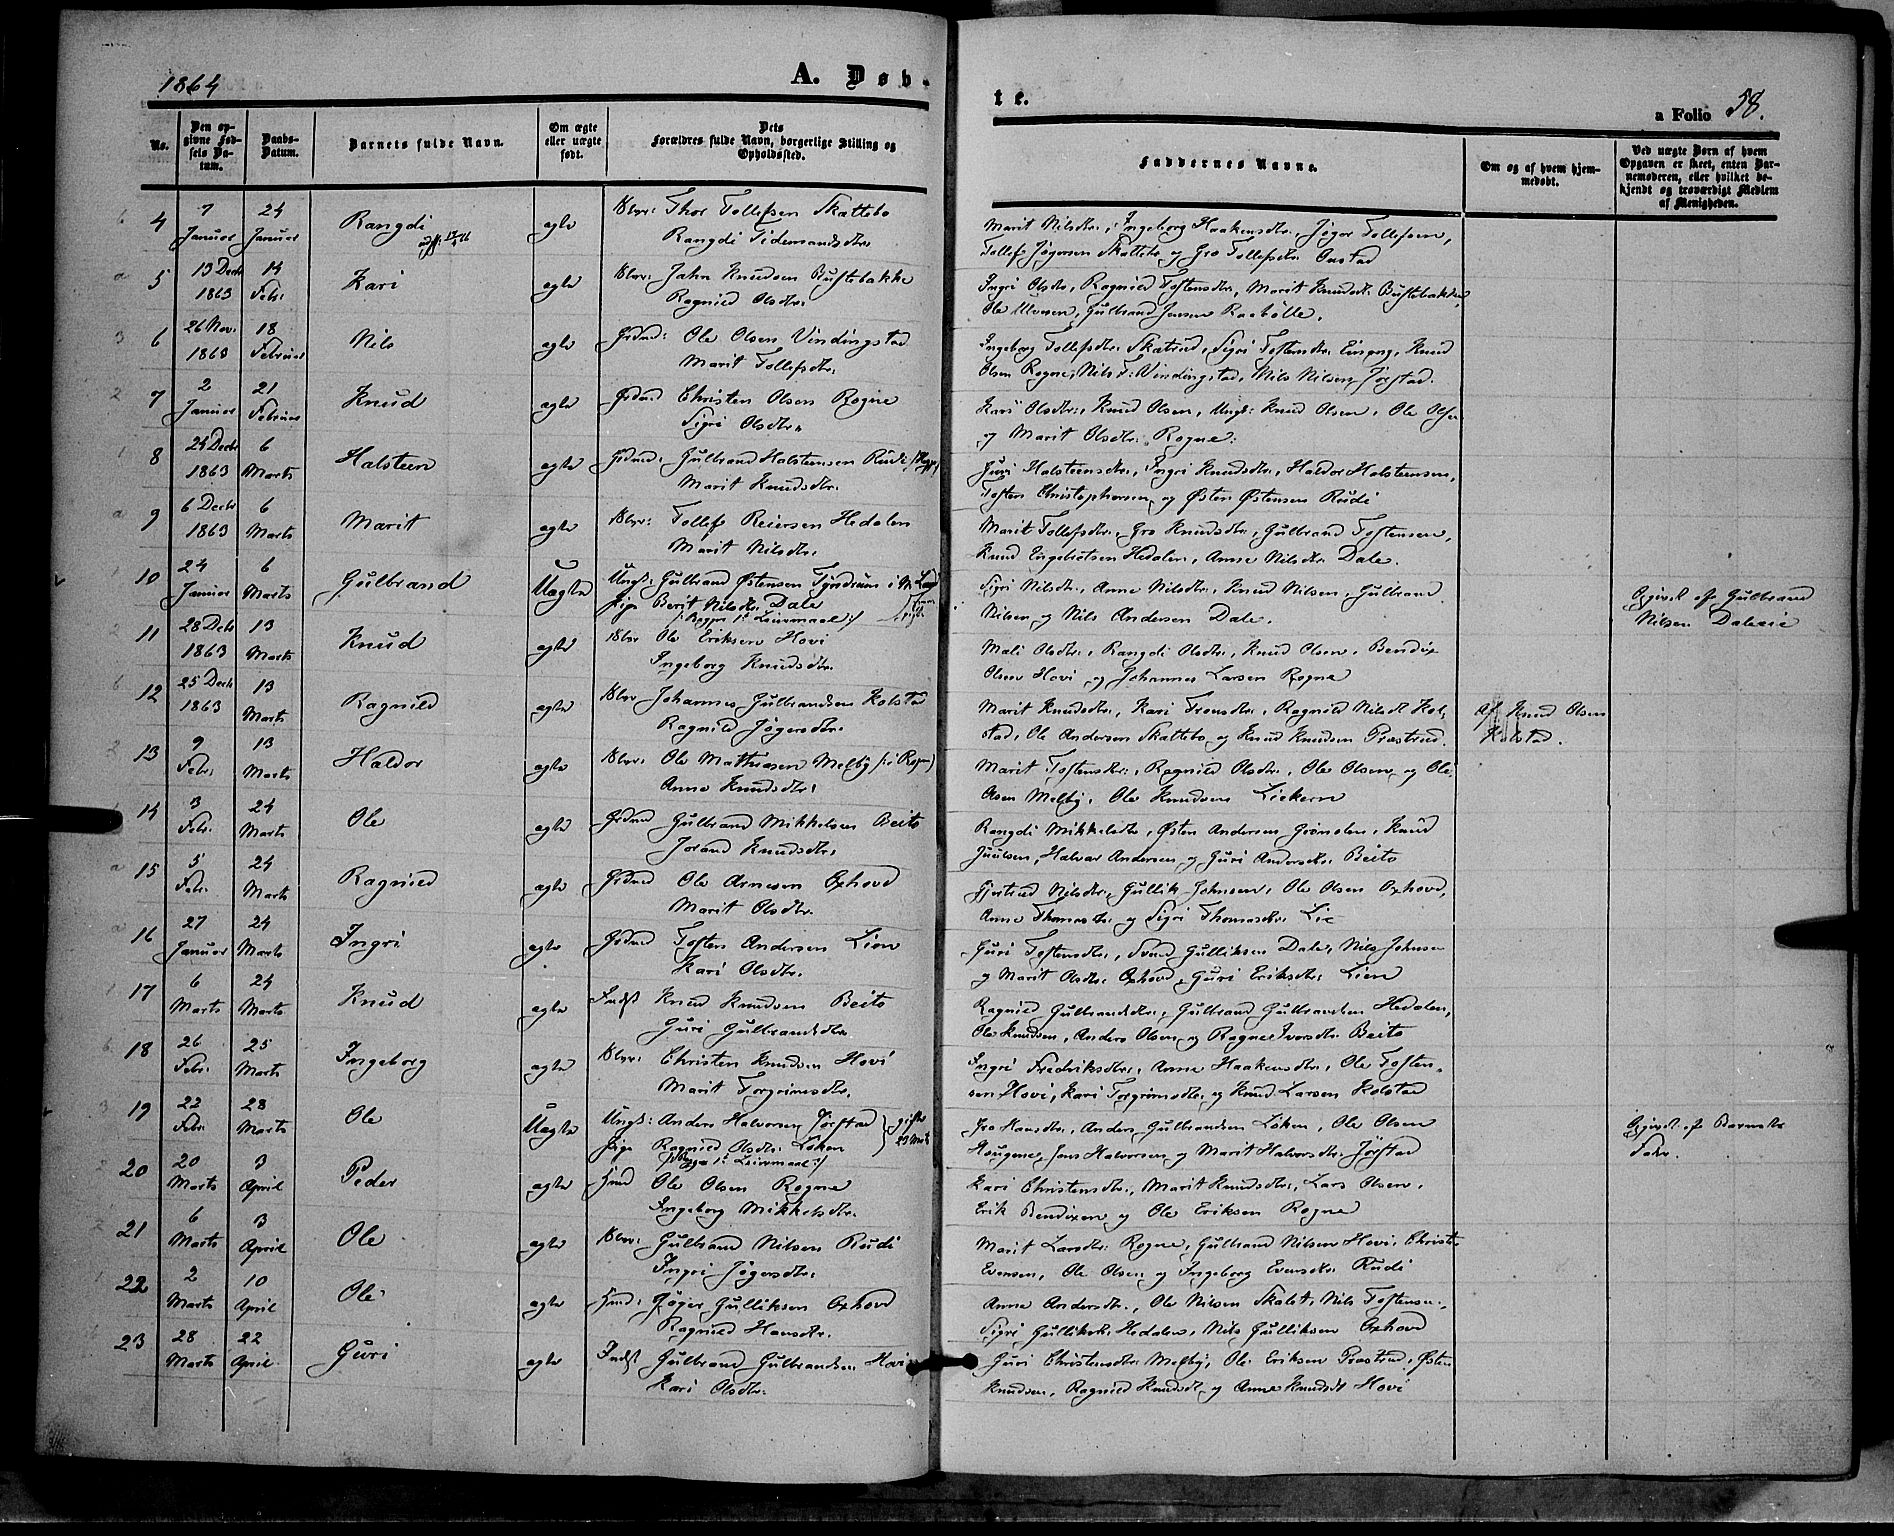 1864
A. Døb-
No.
Den op-
givne Fød-
sels Da-
tum.
Daabs-
Datum.
Barnets fulde Navn.
Om ægte
eller uægte
født.
Dets
Forældres fulde Navn, borgerlige Stilling og
Opholdssted.
4 7 Januar 24 Januar Rangdi ægte Thor Tollefsen Skattebo
Rangdi Tidemandsdtr
5 13 Decbr 1863 14 Febr. Kari ægte John Knudsen Buftebakke
Ragnild Olsdtr.
6 26 Nov. 1863 18 Februar Nils ægte Grdmd: Ole Olsen Vindingstad
Marit Tollefsdtr.
7 2 Januar 21 Februar Knud ægte Grdmd Christen Olsen Rogne
Sigri Olsdtr.
8 24 Decbr 1863 6 Marts Halsteen ægte Grdmd: Gulbrand Halsteensen Rudi
Marit Knudsdtr.
9 6 Decbr 1863 6 Marts Marit ægte Tollef Reiersen Hedalen
Marit Nilsdtr.
10 24 Januar 6 Marts Gulbrand Uægte Ungk: Gulbrand Østensen Tyrdrum
Pige Berit Nilsdtr. Dale
/: Begges 1ste Leiermaal :/
11 28 Decbr 1863 13 Marts Knud ægte Ole Eriksen Hovi
Ingeborg Knudsdtr.
12 25 Decbr 1863 13 Marts Ragnild ægte Johannes Gulbrandsen Kolstad
Ragnild Jøgersdtr.
13 9 Febr. 13 Marts Haldor ægte Ole Mathiasen Melby
Anne Knudsdtr.
14 3 Febr. 24 Marts Ole ægte Grdmd Gulbrand Mikkelsen Beito
Jorand Knudsdtr.
15 5 Febr. 24 Marts Ragnild ægte Grdmd Ole Arnesen Oxhovd
Marit Olsdtr.
16 27 Januar 24 Marts Ingri ægte Grdmd Tosten Andersen Lien
Kari Olsdtr.
17 6 Marts 24 Marts Knud ægte Indst Knud Knudsen Beito
Guri Gulbrandsdtr.
18 26 Febr. 25 Marts Ingeborg ægte Christen Knudsen Hovi
Marit Torgrimsdtr.
19 22 Febr. 28 Marts Ole Uægte Ungk: Anders Halvorsen Jørstad } gifte
Pige Ragnild Olsdtr. Løken 23 Marts
/: Begges 1ste Leiermaal :/
20 20 Marts 3 April Peder ægte Hmd Ole Olsen Rogne
Ingeborg Mikkelsdtr.
21 6 Marts 3 April Ole ægte Gulbrand Nilsen Rudi
Ingri Jøgersdtr.
22 2 Marts 10 April Ole ægte Hmd: Jøger Gulliksen Oxhovd
Ragnild Hansdtr.
23 28 Marts 22 April Guri ægte Indst Gulbrand Gulbrandsen Hovi
Kari Olsdtr.
te.
a Folio 58.
Faddernes Navne.
Om og af hvem hjem-
medøbt.
Ved uægte Børn af hvem
Opgaven er skeet, enten Bar-
nemoderen, eller hvilket be-
kjendt og troværdigt Medlem
af Menigheden.
Marit Nilsdtr., Ingeborg Haakensdtr., Jøger Tollefsen,
Tollef Jøgersen Skattebo og Gro Tollefsdtr. Onstad
Ingri Olsdtr, Ragnild Tostensdtr., Marit Knudsdtr. Buftebakken
Ole Ulvesen, Gulbrand Jensen Raabølle.
Ingeborg Tollefsdtr. Skatrud, Sigri Tostensdtr. Einang, Knud
Olsen Rogne, Nils T. Vindingstad, Nils Nilsen Jørstad.
Kari Olsdtr., Knud Olsen, Ungk: Knud Olsen, Ole Olsen
og Marit Olsdtr. Rogne.
Guri Halsteensdtr., Ingri Knudsdtr., Haldor Halsteensen,
Tosten Christophersen og Østen Østensen Rudi
Marit Tollefsdtr., Gro Knudsdtr., Gulbrand Tostensen,
Knud Engebretsen Hedalen, Anne Nilsdtr. Dale.
Sigri Nilsdtr., Anne Nilsdtr., Knud Nilsen, Gulbrand
Nilsen og Nils Andersen Dale.
Opgivet af Gulbrand
Nilsen Daleeie
Mali Olsdtr., Rangdi Olsdtr., Knud Olsen, Bendix
Olsen Hovi og Johannes Larsen Rogne
Marit Knudsdtr., Kari Tronsdtr., Ragnild Nilsdt Kol-
stad, Ole Andersen Skattebo og Knud Knudsen Præstrud.
Af Knud Olsen
Kolstad.
Marit Tostensdtr., Ragnild Olsdtr., Ole Olsen og Ole
Olsen Melby, Ole Knudsen Liekern
Rangdi Mikkelsdtr, Østen Andersen Grønolen, Knud
Juulsen, Halvor Andersen og Guri Andersdtr. Beito
Gjertrud Nilsdtr., Gullik Johnsen, Ole Olsen Oxhovd,
Anne Thomasdtr. og Sigri Thomasdtr. Lie
Guri Tostensdtr., Svend Gulliksen Dale, Nils Johnsen
og Marit Olsdtr. Oxhovd, Guri Eriksdtr. Lien
Ragnild Gulbrandsdtr., Gulbrand Gulbrandsen Hedalen,
Ole Knudsen, Anders Olsen og Ragne Iversdtr. Beito
Ingri Fredriksdtr., Anne Haakensdtr., Ole Tosten-
sen Hovi, Kari Torgrimsdtr. og Knud Larsen Kolstad
Gro Hansdtr., Anders Gulbrandsen Løken, Ole Olsen
Haugene, Jens Halvorsen og Marit Halvorsdtr. Jørstad
Opgivet af Barnets
Fader.
Kari Christensdtr., Marit Knudsdtr., Lars Olsen,
Erik Bendixen og Ole Eriksen Rogne
Marit Larsdtr. Rogne, Gulbrand Nilsen Hovi, Christen
Evensen, Ole Olsen og Ingeborg Evensdtr. Rudi
Anne Andersdtr., Ole Nilsen Skalet, Nils Tostensen,
Sigri Gulliksdtr. Hedalen, Nils Gulliksen Oxhovd
Guri Christensdtr. Melby, Ole Eriksen Præstrud, Østen
Knudsen, Ragnild Knudsdt. og Anne Knudsdt Hovi